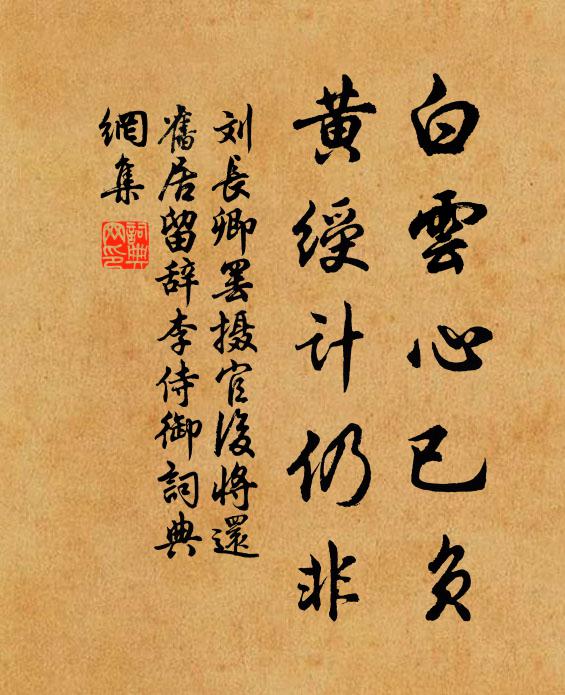 白雲心已负
黄綬计仍非
刘長卿罢摄官後将還
舊居留辞李侍御詞典
網集
詞典
网印